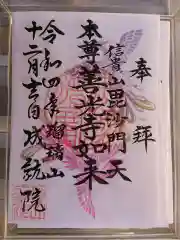 奉拝
信貴山毘沙門天
本尊善光寺如来
瑠璃山
成就院
令和四年
十二月吉日